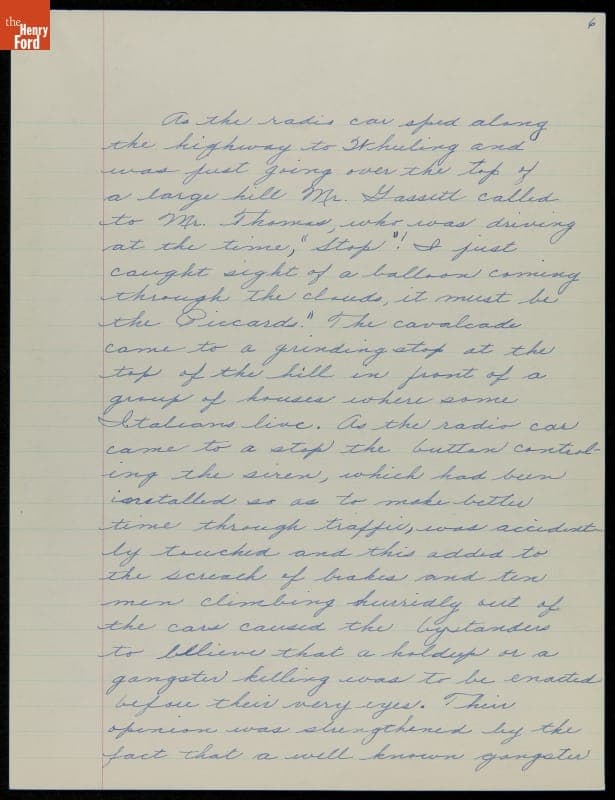 the
Henry
Ford
6
As the radio car sped along
the highway to Wheeling and
was just going over the top of
a large hill Mr. Gassitt called
to Mr. Thomas, who was driving
at the time, "Stop"! I just
caught sight of a balloon coming
through the clouds, it must be
the Piccards." The cavalcade
came to a grinding stop at the
top of the hill in front of a
group of houses where some
Italians live. As the radio car
came to a stop the button control-
ing the siren, which had been
installed so as to make better
time through traffic, was accident-
ly touched and this added to
the screach of brakes and ten
men climbing hurridly out of
the cars caused the bystanders
to believe that a holdup or a
gangster killing was to be enacted
before their very eyes. Their
opinion was strengthened by the
fact that a well known gangster